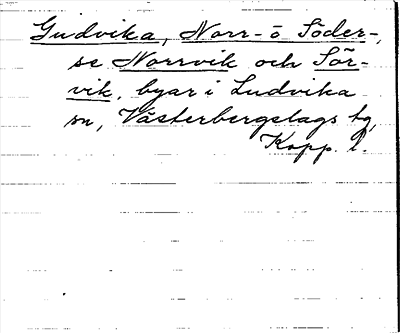 Gudvika, Norr- o Söder-,
se Norrvik och Sör-
vik, byar i Ludvika
sn, Västerbergslags tg,
Kopp. l.